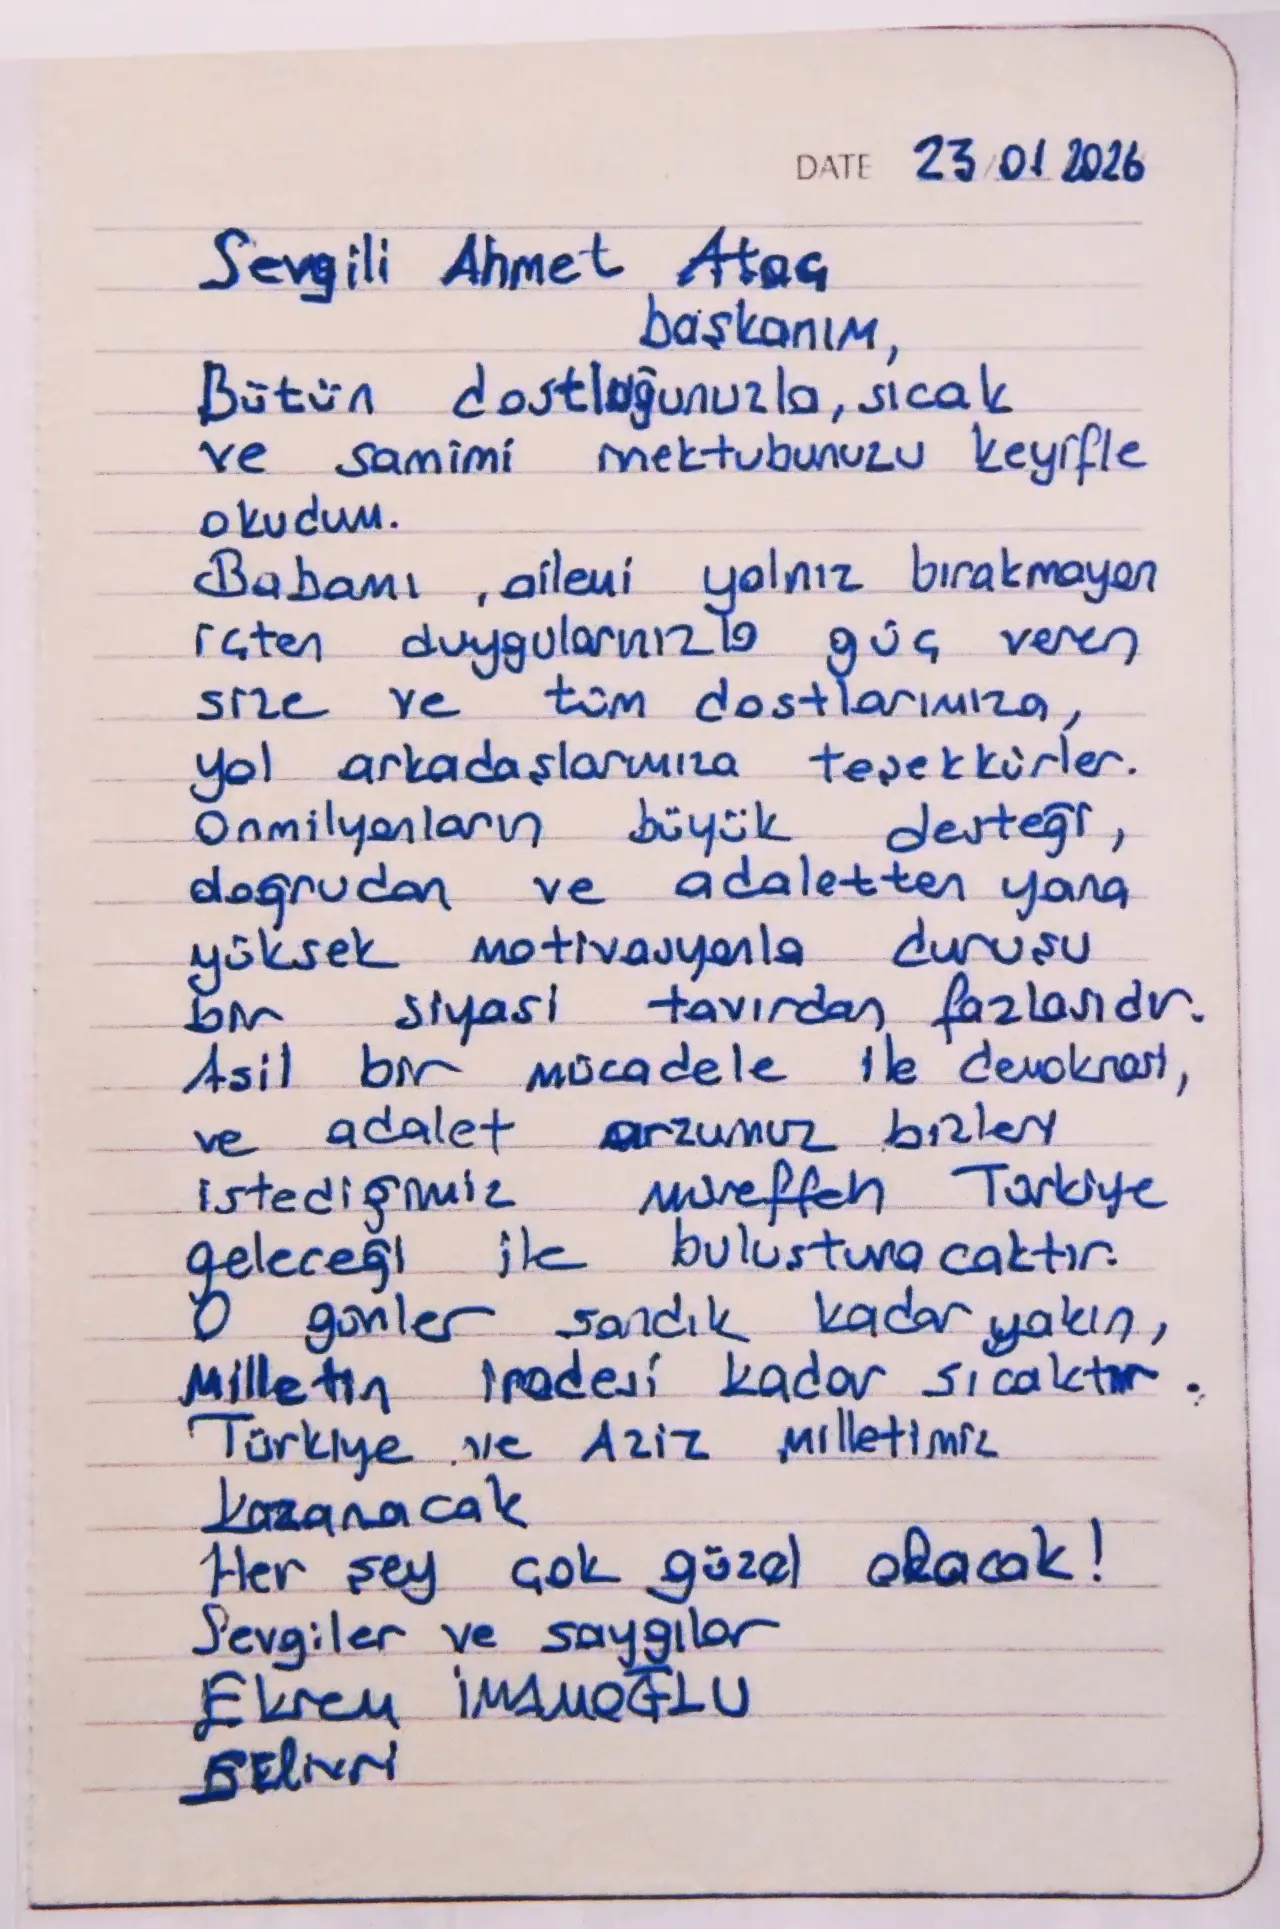 DATE 23/01 2026
Sevgili Ahmet Ataç
başkanım,
Bütün dostluğunuzla, sıcak
ve samimi mektubunuzu keyifle
okudum.
Babamı, ailemi yalnız bırakmayan
içten duygularınızla güç veren
size ve tüm dostlarımıza,
yol arkadaşlarımıza teşekkürler.
Onmilyonların büyük desteği,
doğrudan ve adaletten yana
yüksek motivasyonla duruşu
bir siyasi tavırdan fazlasıdır.
Asil bir mücadele ile demokrasi,
ve adalet arzumuz bizleri
istediğimiz müreffeh Türkiye
geleceği ile buluşturacaktır.
O günler sandık kadar yakın,
Milletin iradesi kadar sıcaktır.
Türkiye ve Aziz Milletimiz
kazanacak
Her şey çok güzel olacak!
Sevgiler ve saygılar
Ekrem İMAMOĞLU
Silivri